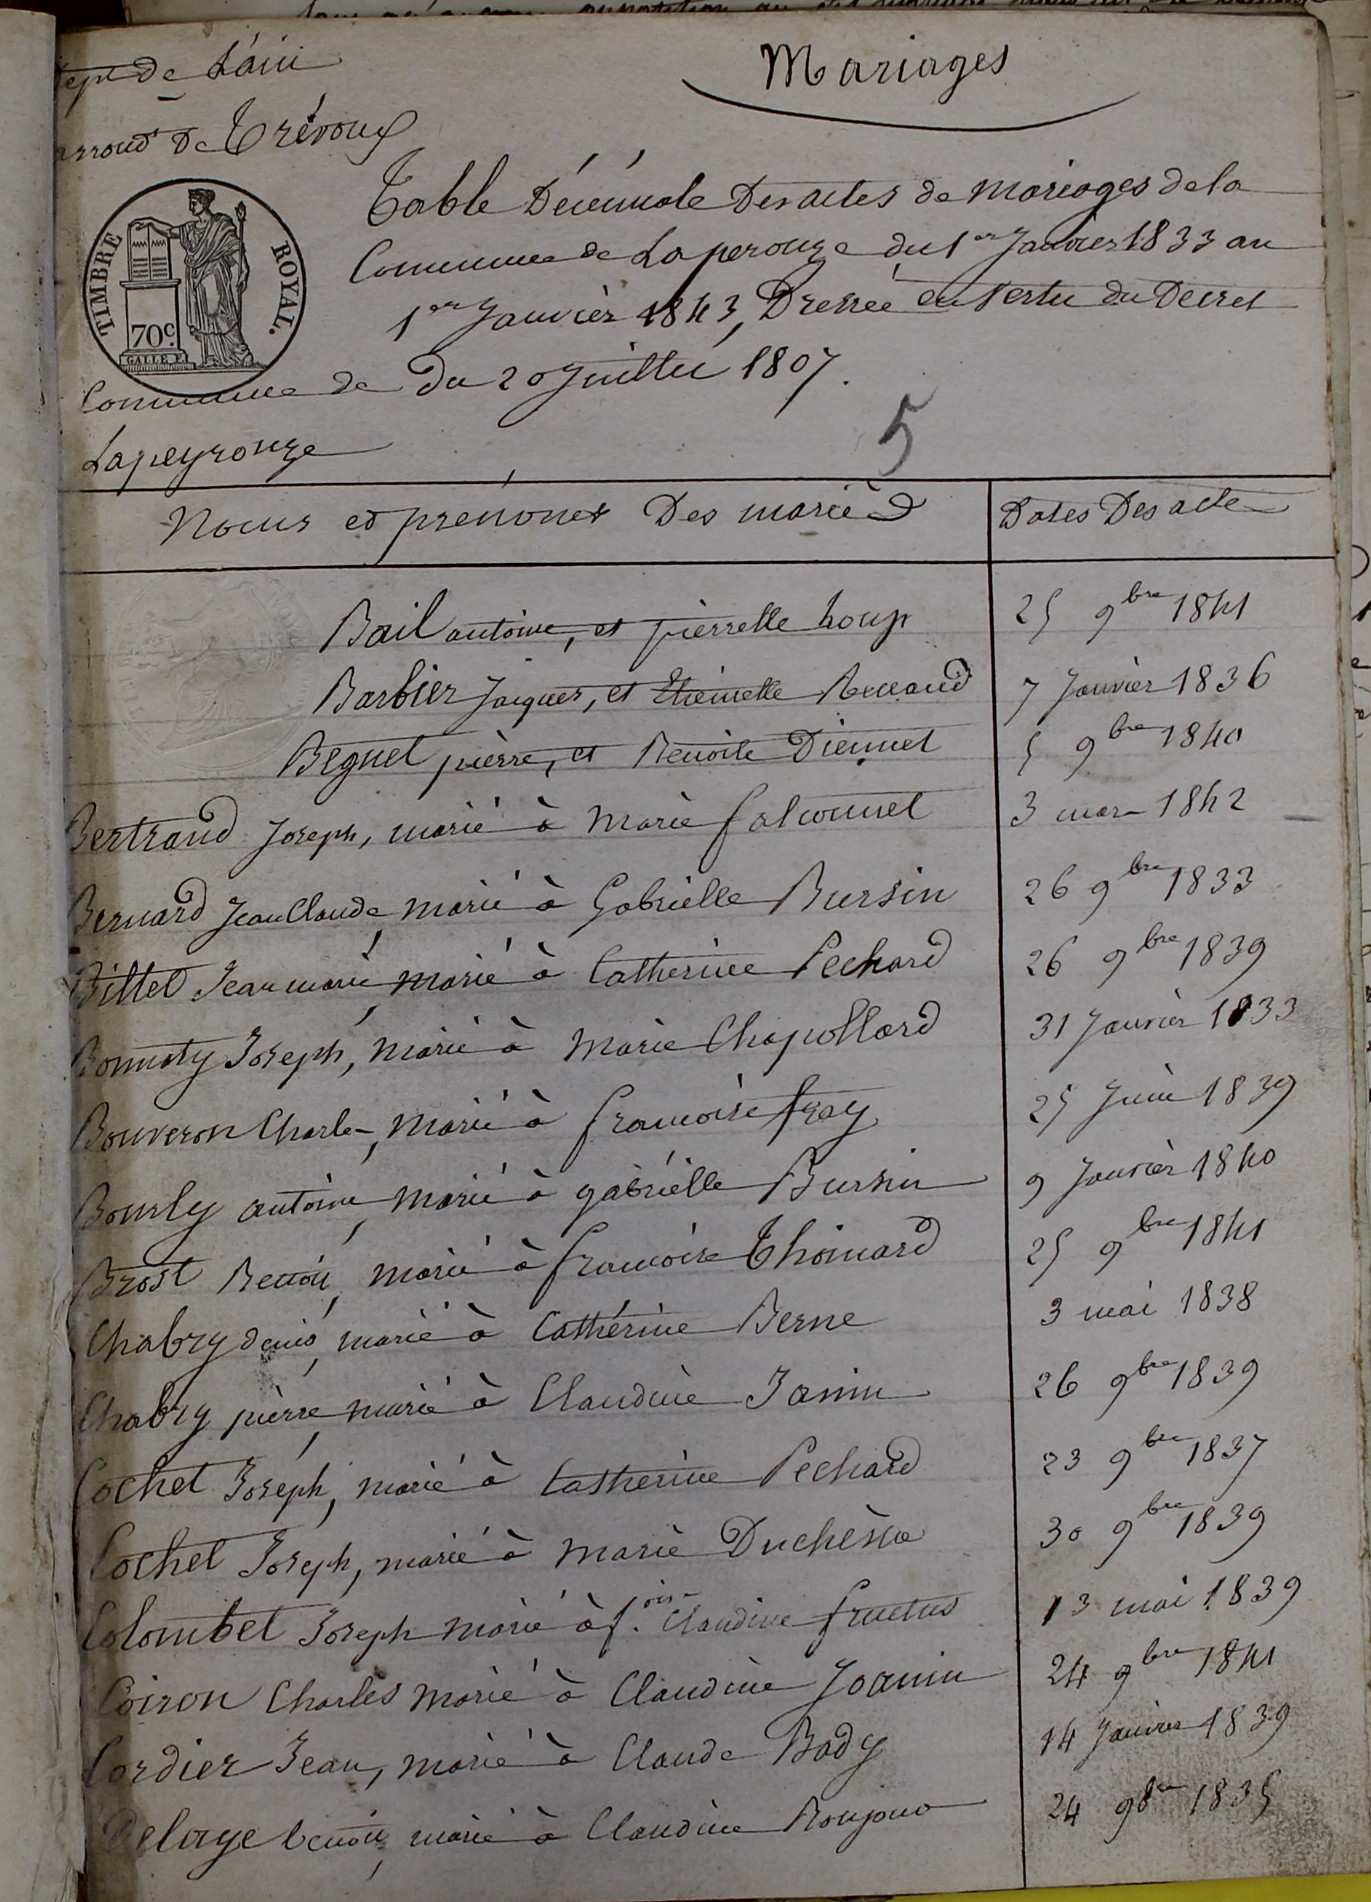 Mariages
Dept de L'ain
arrond^t De Trévoux
TIMBRE ROYAL.
70c.
GALLE F.
Table Décennale Des actes de mariages de la
Commune de Laperouze du 1er Janvier 1833 au
1er Janvier 1843, Dressée en Vertu du Decret
du 20 Juillet 1807.
Commune de
Lapeyrouze
5
Noms et prénoms Des mariés Dates Des acte
Bail antoine, et pierrette Loup 25 9bre 1841
Barbier Jacques, et Etiennette Renaud 7 Janvier 1836
Begnet pièrre, et Benoite Diennet 5 9bre 1840
Bertrand Joseph, marié à Marie falconnet 3 mars 1842
Bernard Jean Claude, marié à Gabrielle Bursin 26 9bre 1833
Billet Jean marie, marié à Catherine Pechard 26 9bre 1839
Bonnoty Joseph, marié à Marie Chapollard 31 Janvièr 1833
Bouveron Charles, marié à francoise fray 25 Juin 1839
Bourly antoine, marié à gabrièlle Bursin 9 Janvièr 1840
Brost Benoit, marié à francoise Thoinard 25 9bre 1841
Chabry denis, marié à Cathérine Berne 3 mai 1838
Chabry pièrre, marié à Claudine Janin 26 9bre 1839
Cochet Joseph, marié à Catherine Pechard 23 9bre 1837
Cochet Joseph, marié à Marie Duchêne 30 9bre 1839
Colombet Joseph marié à f.oise Claudine fructus 13 mai 1839
Coiron Charles marié à Claudine Joanin 24 9bre 1841
Cordier Jean, marié à Claude Bady 14 Janvier 1839
Delaye benoit, marié à Claudine Roujoux 24 98re 1835